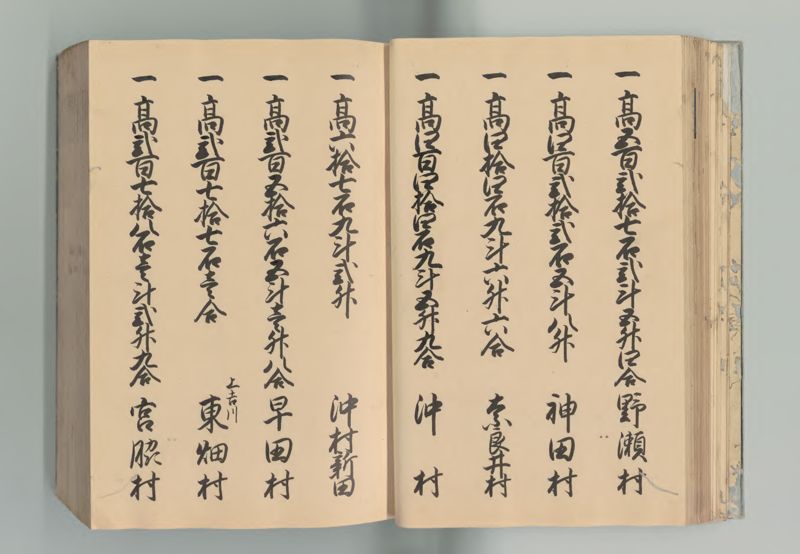 一高五百弐拾七石弐斗五升四合野瀬村
一高四百弐拾弐石五斗八升神田村
一高四拾四石九斗六升六合奈良井村
一高四百四拾四石九斗五升九合沖村
一高六拾七石九斗弐升沖村新田
一高弐百五拾六石五斗壱升八合早田村
一高弐百七拾七石壱合上吉川東畑村
一高弐百七拾八石壱斗弐升九合宮脇村